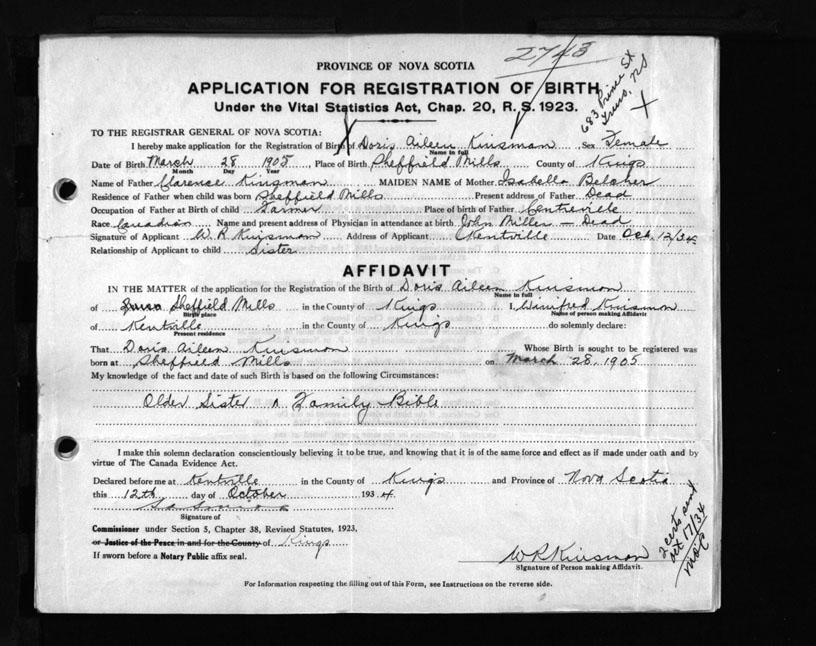 2743
PROVINCE OF NOVA SCOTIA
683 Prince St
Truro, NS
APPLICATION FOR REGISTRATION OF BIRTH
Under the Vital Statistics Act, Chap. 20, R. S. 1923.
TO THE REGISTRAR GENERAL OF NOVA SCOTIA:
I hereby make application for the Registration of Birth of Doris Aileen Kinsman Sex Female
Name in full
Date of Birth March 28 1905 Place of Birth Sheffield Mills County of Kings
Month Day Year
Name of Father Clarence Kinsman MAIDEN NAME of Mother Isabella Belcher
Residence of Father when child was born Sheffield Mills Present address of Father Dead
Occupation of Father at Birth of child Farmer Place of birth of Father Centreville
Race Canadian Name and present address of Physician in attendance at birth John Miller - Dead
Signature of Applicant W R Kinsman Address of Applicant Kentville Date Oct 12/34
Relationship of Applicant to child Sister
AFFIDAVIT
IN THE MATTER of the application for the Registration of the Birth of Doris Aileen Kinsman
Name in full
of Sheffield Mills in the County of Kings I, Winifred Kinsman
Birth place Name of person making Affidavit
of Kentville in the County of Kings do solemnly declare:
Present residence
That Doris Aileen Kinsman Whose Birth is sought to be registered was
born at Sheffield Mills on March 28, 1905
My knowledge of the fact and date of such Birth is based on the following Circumstances:
Older Sister Family Bible
I make this solemn declaration conscientiously believing it to be true, and knowing that it is of the same force and effect as if made under oath and by
virtue of The Canada Evidence Act.
Declared before me at Kentville in the County of Kings and Province of Nova Scotia
this 12th day of October 1934.
Signature of
Commissioner under Section 5, Chapter 38, Revised Statutes, 1923,
or Justice of the Peace in and for the County of Kings
If sworn before a Notary Public affix seal.
W R Kinsman
Signature of Person making Affidavit.
2 certs send
Oct 17/34
For Information respecting the filling out of this Form, see Instructions on the reverse side.